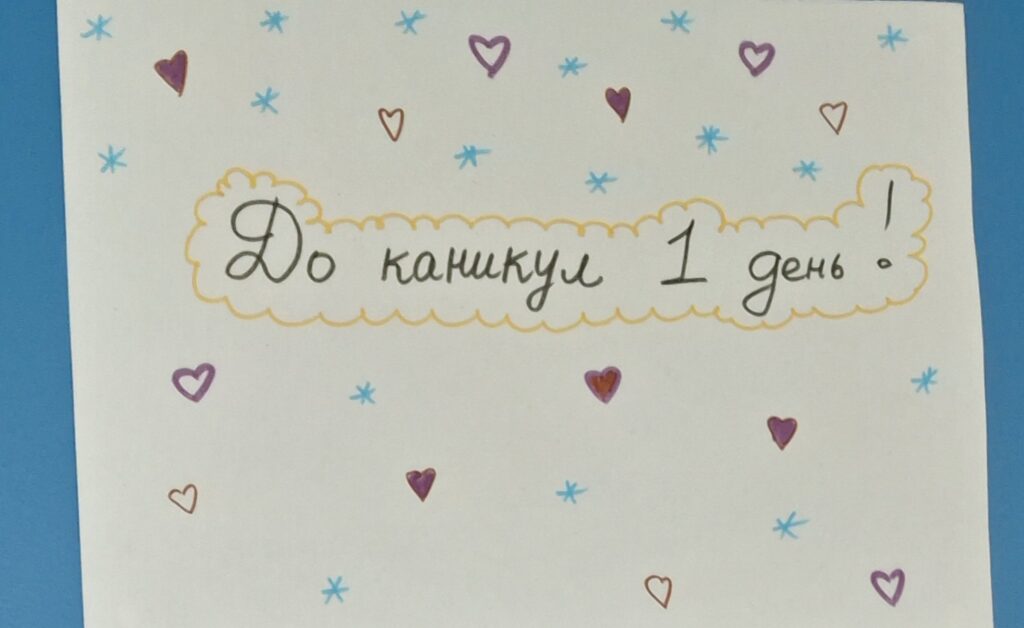 До каникул 1 день!